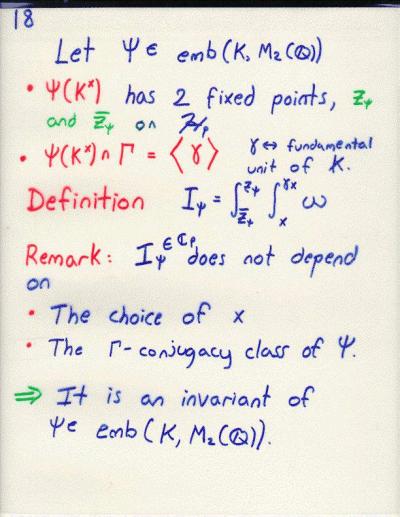 18
Let Ψ ∈ emb(K, M₂(ℚ))
• Ψ(Kˣ) has 2 fixed points, z_Ψ
and z̄_Ψ on ℋ_p
• Ψ(Kˣ) ∩ Γ = ⟨γ⟩ γ ↔ fundamental
unit of K.
Definition I_Ψ = ∫_{z̄_Ψ}^{z_Ψ} ∫_x^{γx} ω
Remark: I_Ψ ∈ ℂ_p does not depend
on
• The choice of x
• The Γ-conjugacy class of Ψ.
⇒ It is an invariant of
Ψ ∈ emb(K, M₂(ℚ)).